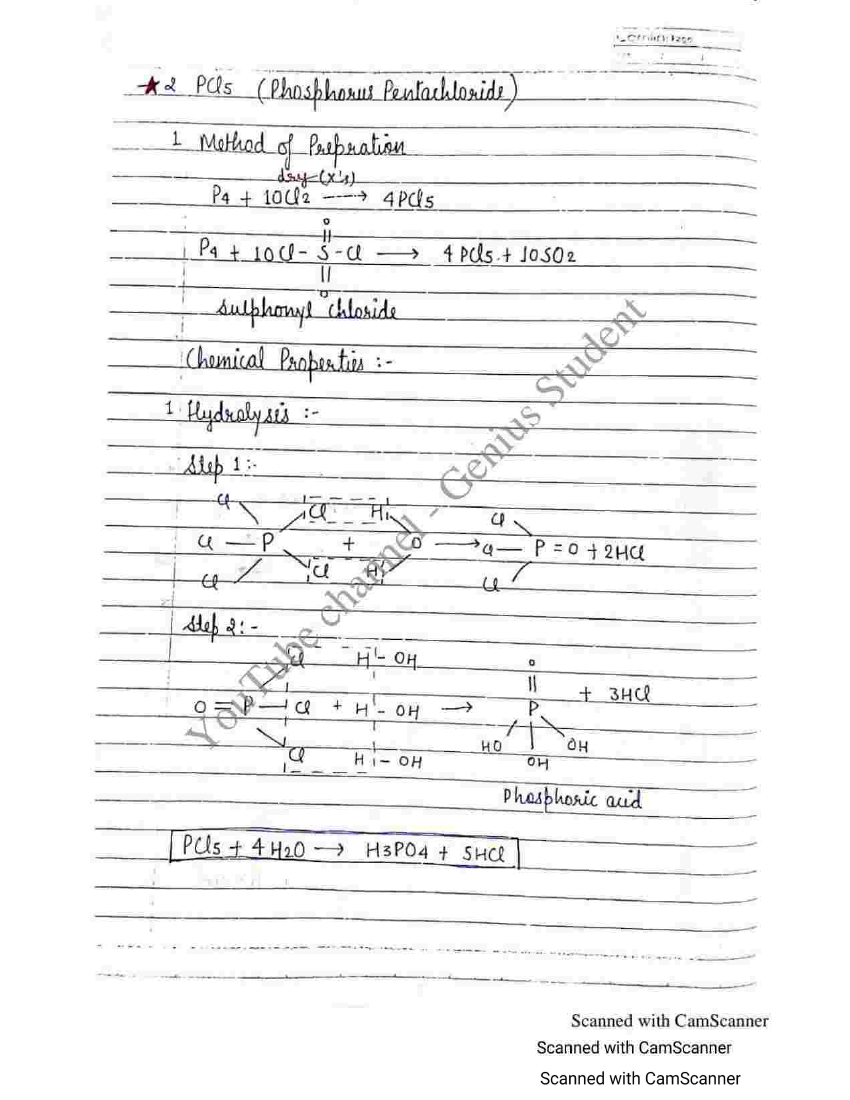 ★ 2 PCl5 (Phosphorus Pentachloride)
1 Method of Prepration
dry (X's)
P4 + 10Cl2 ----> 4PCl5
O
||
P4 + 10Cl - S - Cl ⟶ 4 PCl5 + 10SO2
||
O
Sulphonyl chloride
Chemical Properties :-
1. Hydrolysis :-
Step 1 :-
Cl Cl H Cl
Cl — P + O ⟶ Cl — P = O + 2HCl
Cl Cl H Cl
Step 2 :-
Cl H - OH O
|| + 3HCl
O = P — Cl + H - OH ⟶ P
HO OH
Cl H - OH OH
Phosphoric acid
PCl5 + 4H2O ⟶ H3PO4 + 5HCl
YouTube channel - Genius Student
Scanned with CamScanner
Scanned with CamScanner
Scanned with CamScanner